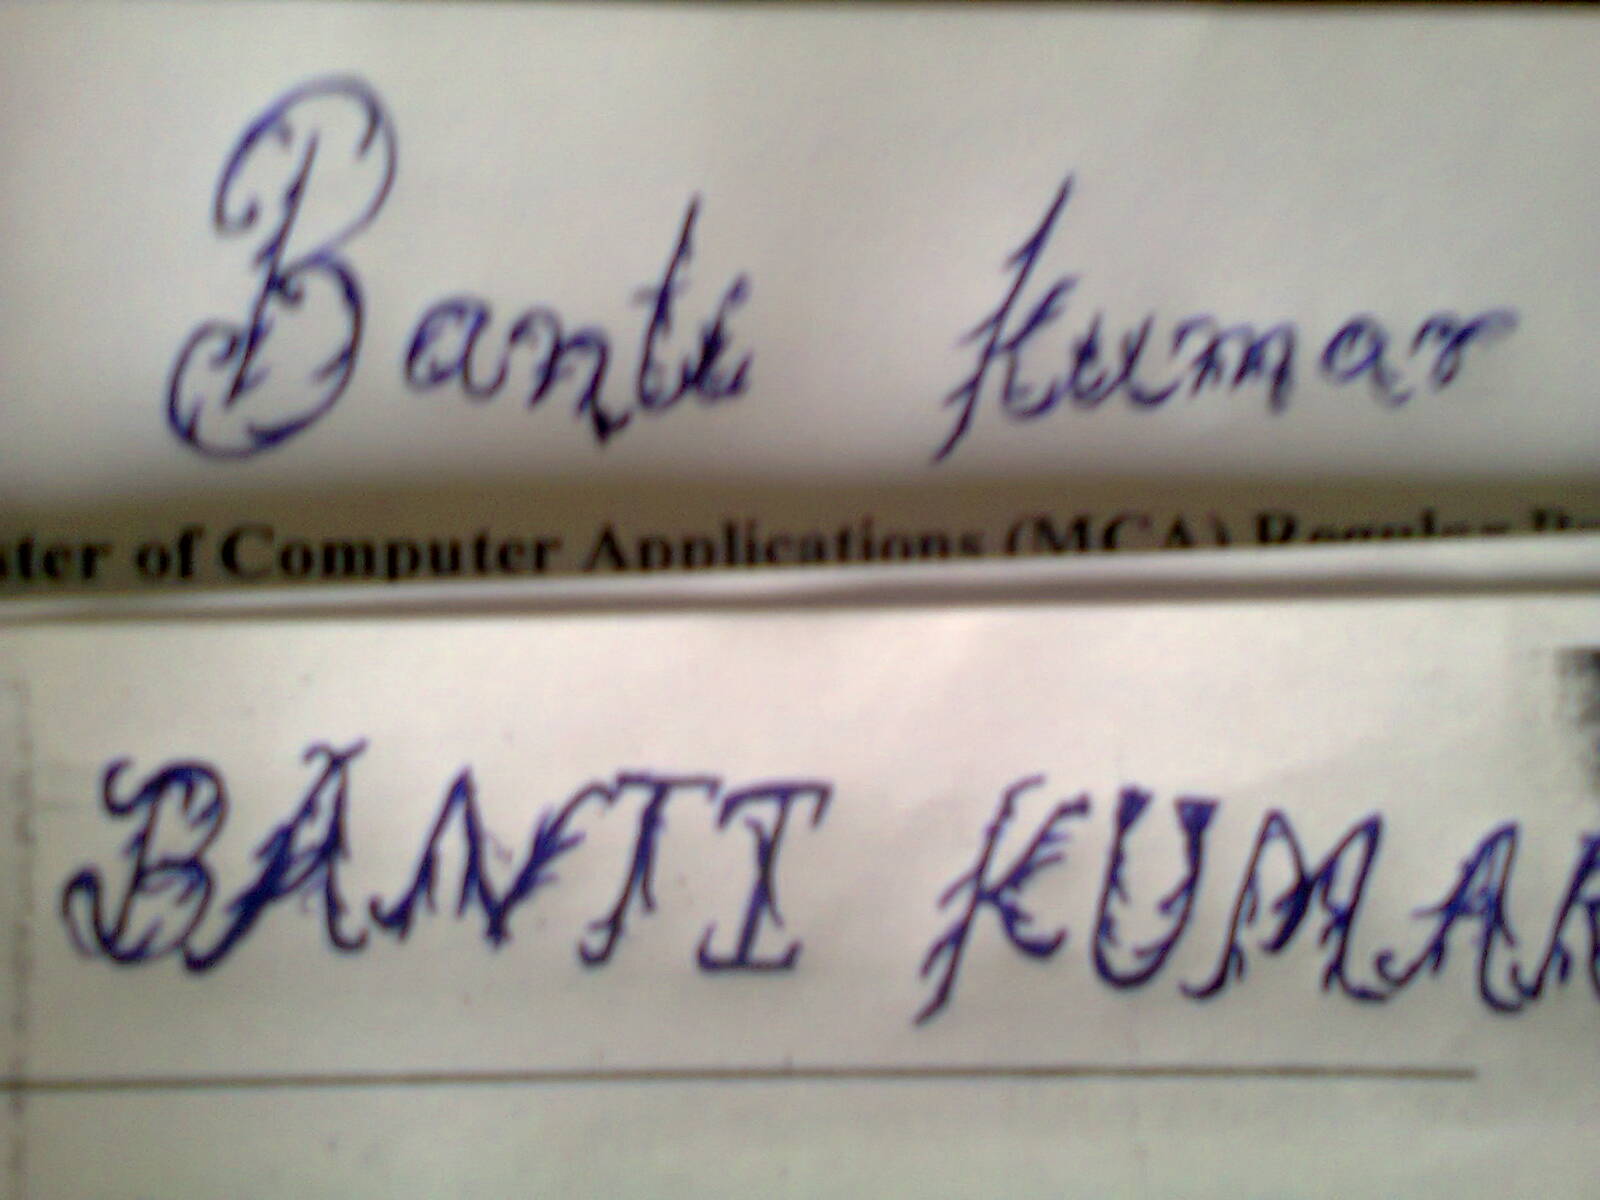 Banti Kumar
ster of Computer Applications (MCA) Regular
BANTI KUMAR